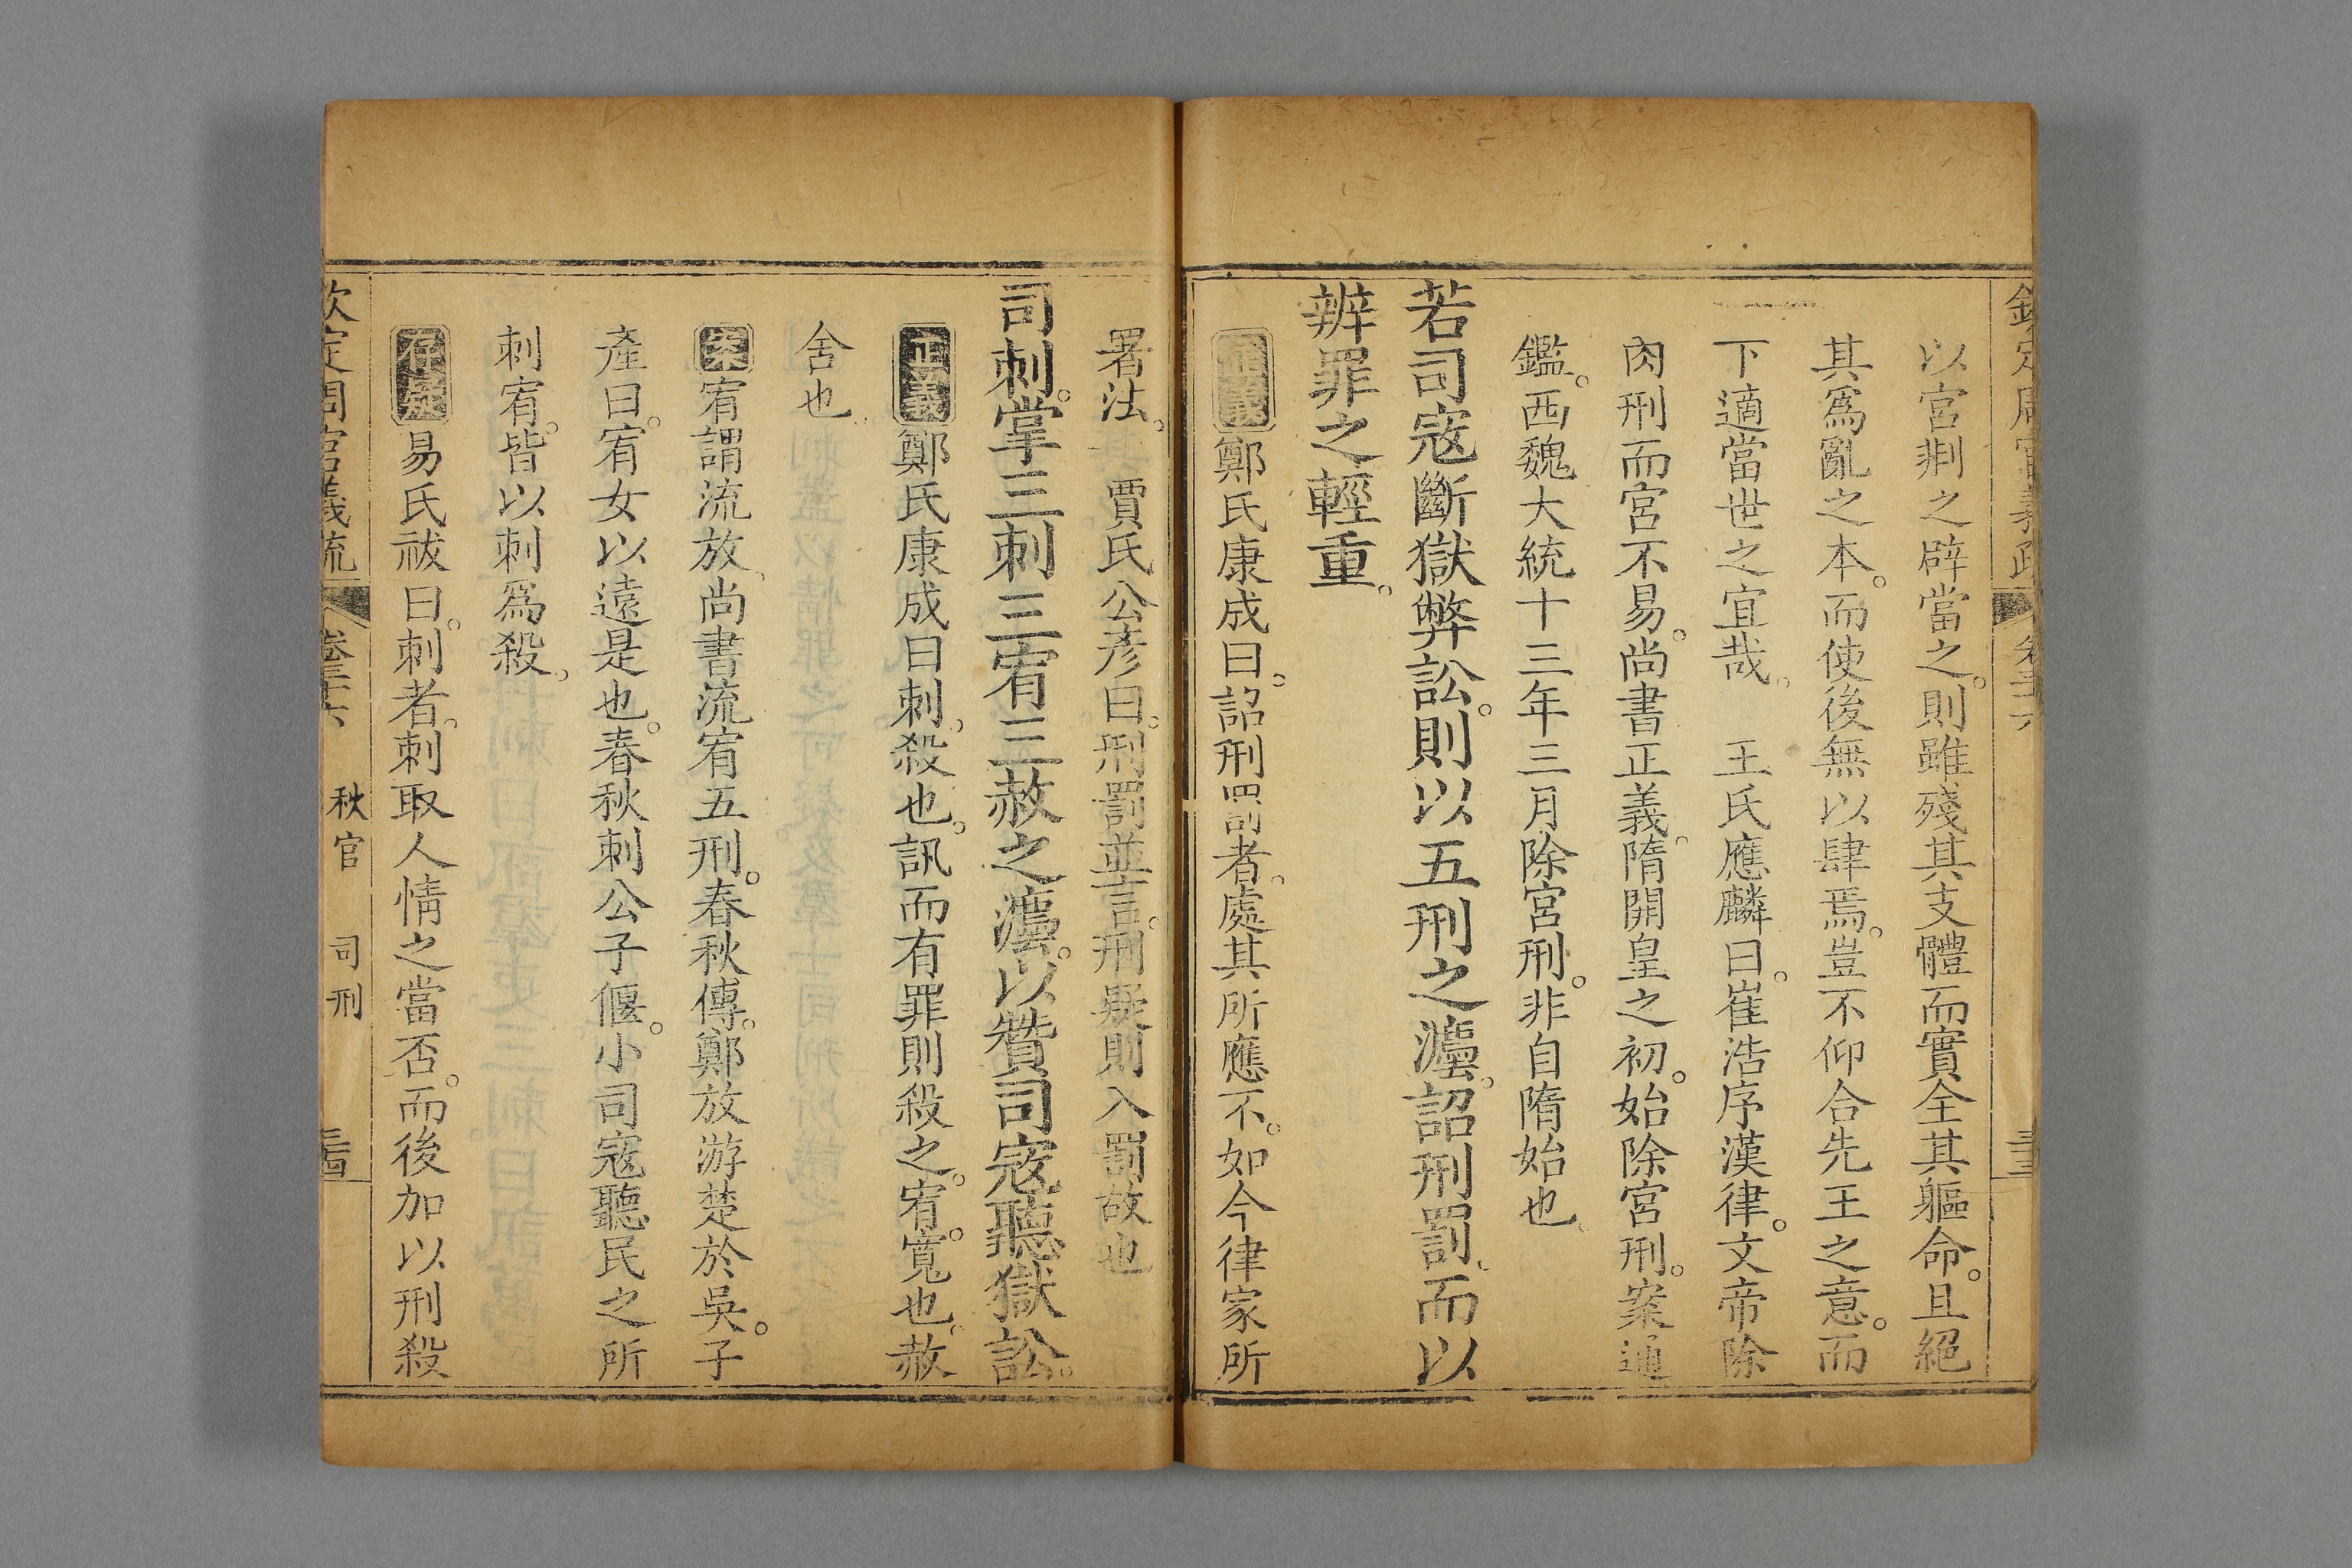 欽定周官義疏 卷三十六
以宮剕之辟當之。則雖殘其支體而實全其軀命。且絕
其爲亂之本。而使後無以肆焉。豈不仰合先王之意。而
下適當世之宜哉。 王氏應麟曰。崔浩序漢律。文帝除
肉刑而宮不易。尚書正義。隋開皇之初。始除宮刑。案通
鑑。西魏大統十三年三月除宮刑。非自隋始也。
若司寇斷獄弊訟。則以五刑之灋。詔刑罰。而以
辨罪之輕重。
正義鄭氏康成曰。詔刑罰者。處其所應不。如今律家所
署法。 賈氏公彥曰。刑罰並言。刑疑則入罰故也
司刺。掌三刺三宥三赦之灋。以贊司寇聽獄訟。
正義鄭氏康成曰。刺。殺也。訊而有罪則殺之。宥。寬也。赦
舍也。
案宥謂流放。尚書流宥五刑。春秋傳。鄭放游楚於吳。子
產曰。宥女以遠是也。春秋刺公子偃。小司寇聽民之所
刺宥。皆以刺爲殺。
存疑易氏祓曰。刺者。刺取人情之當否。而後加以刑殺
欽定周官義疏 卷三十六 秋官 司刑